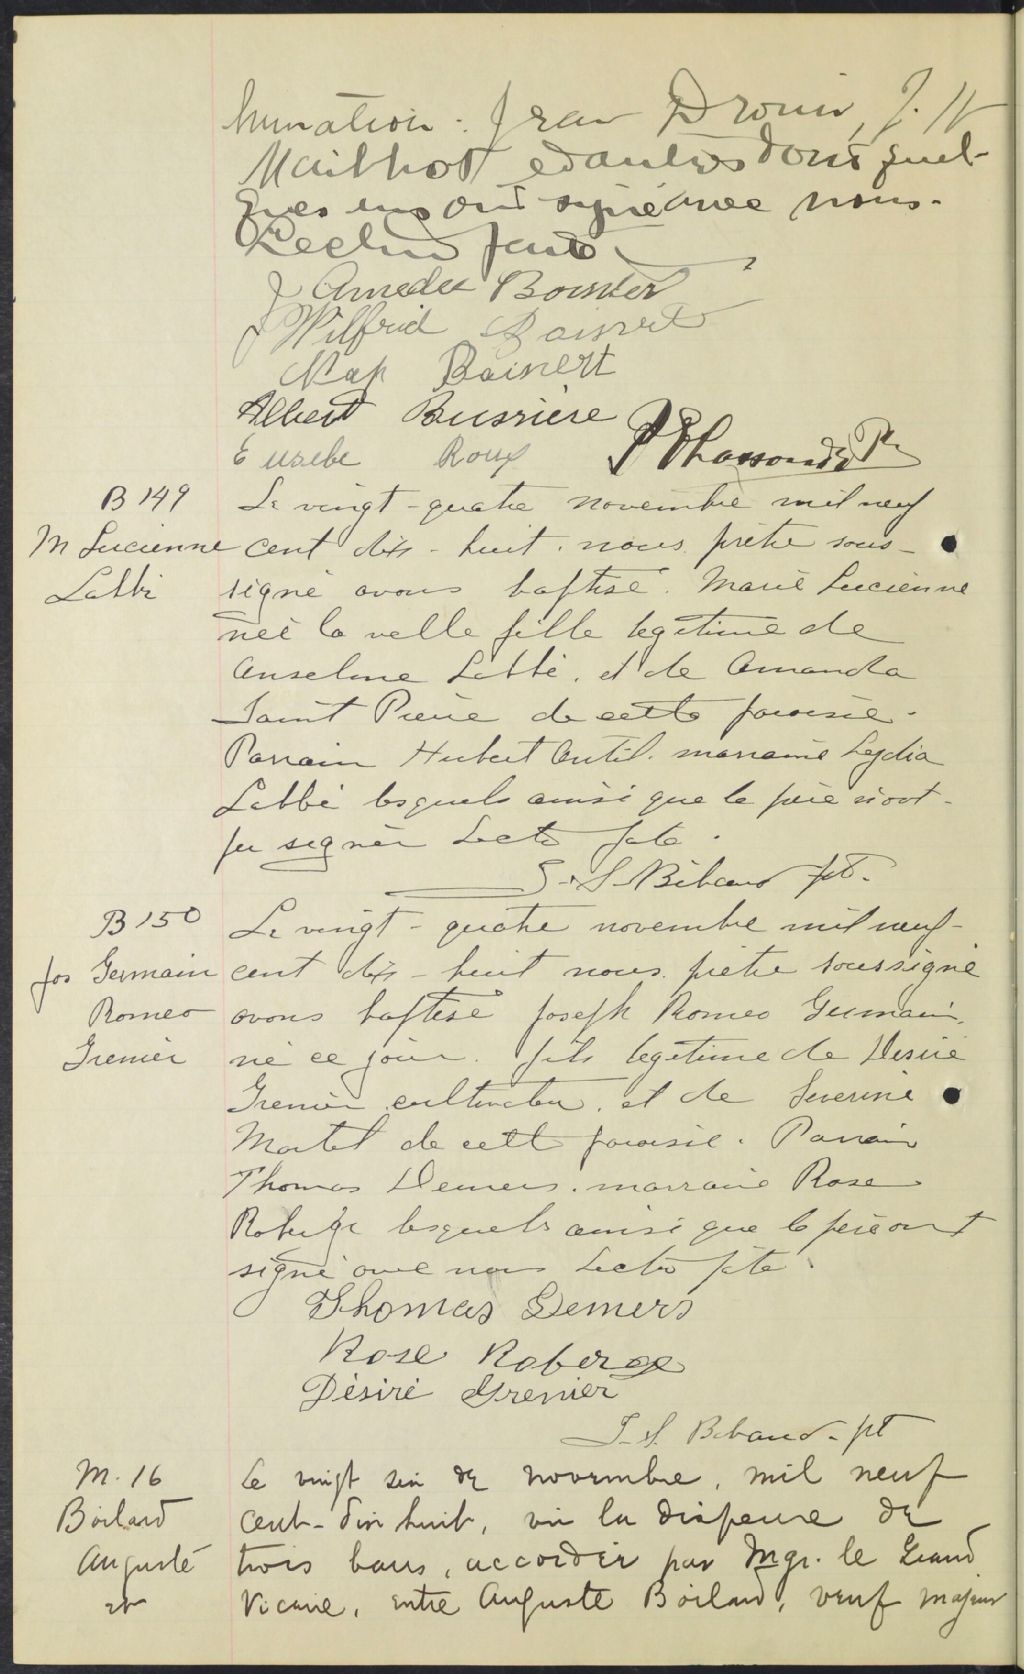 humation. Jean Drouin, J. W
Mailhot et autres dont quel-
ques uns ont signé avec nous.
Lecture faite.
J Amedee
J Wilfrid Boisvert
Nap Boisvert
Albert Bussiere
Eusebe Roux
B 149
M Lucienne
Labbé
Le vingt-quatre novembre mil neuf
cent dix-huit. nous prêtre sous-
signé avons baptisé. Marie Lucienne
née la veille fille legitime de
Anselme Labbé. et de Amanda
Saint Pierre de cette paroisse.
Parrain Hubert Cutil. marraine Lydia
Labbé lesquels ainsi que le père n'ont
pu signer Lecto fate.
J. S. Bibaud pt.
B 150
Jos Germain
Romeo
Grenier
Le vingt-quatre novembre mil neuf-
cent dix-huit nous prêtre soussigné
avons baptisé Joseph Romeo Germain,
né ce jour. fils legitime de Desiré
Grenier cultivateur. et de Severine
Martel de cette paroisse. Parrain
Thomas Demers. marraine Rose
Roberge lesquels ainsi que le père ont
signé avec nous Lecto fate.
Thomas Demers
Rose Roberge
Désiré Grenier
J. S. Bibaud-pt
M. 16
Boilard
Auguste
et
Le vingt six de novembre, mil neuf
cent-dix huit, vu la dispense de
trois bans, accordée par Mgr. le Grand
Vicaire, entre Auguste Boilard, veuf majeur